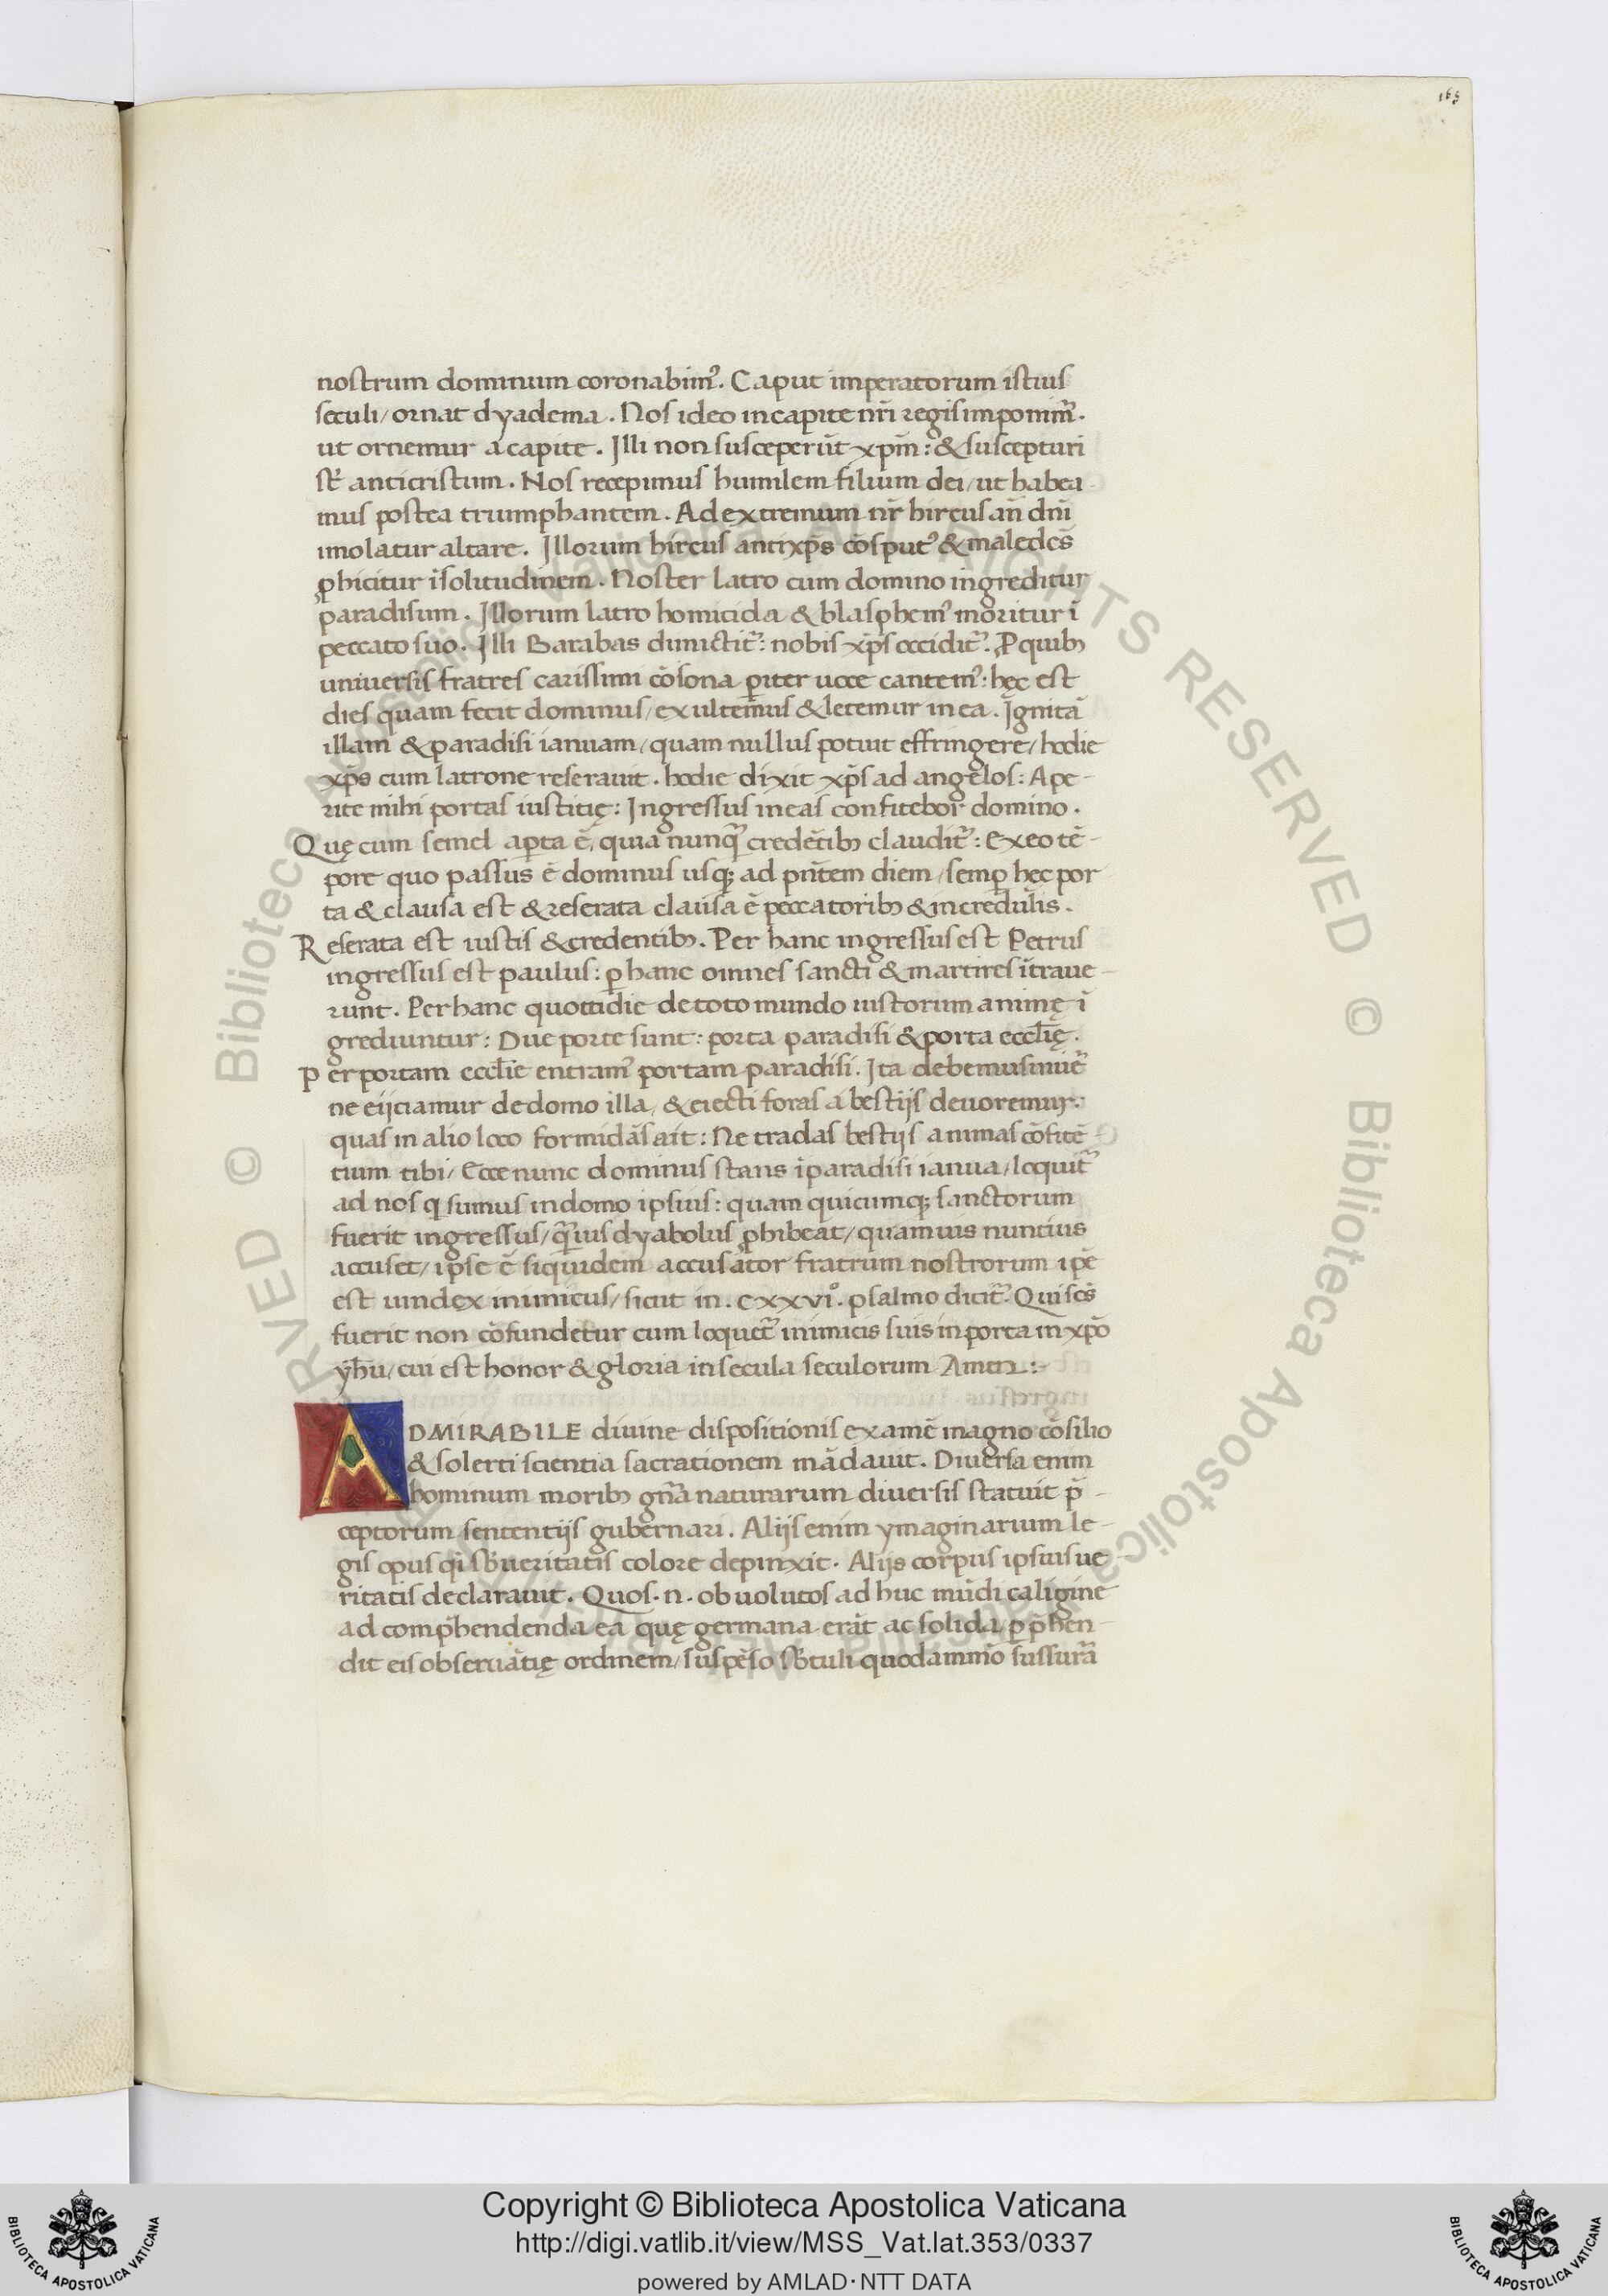 165
nostrum dominum coronabim⁹. Caput imperatorum istius
seculi/ ornat dyadema. Nos ideo in capite nr̄i regis imponim⁹.
ut ornemur a capite. Illi non susceperūt xp̄m: & suscepturi
st̄ anticristum. Nos recepimus humilem filium dei/ ut habea-
mus postea triumphantem. Ad extremum nr̄ hircus an̄ dn̄i
imolatur altare. Illorum hircus antixp̄s cōsput⁹ & maledc̄s
ꝓhicitur ī solitudinem. Noster latro cum domino ingreditur
paradisum. Illorum latro homicida & blasphem⁹ moritur ī
peccato suo. Illi Barabas dimictit᷑: nobis xp̄s occidit᷑. Ꝓ quibꝫ
universis fratres carissimi cōsona ꝑiter uoce cantem⁹: hęc est
dies quam fecit dominus/ exultemus & letemur in ea. Ignitā
illam & paradisi ianuam/ quam nullus potuit effringere/ hodie
xp̄s cum latrone reserauit. hodie dixit xp̄s ad angelos: Ape-
rite mihi portas iustitię: Ingressus in eas confitebor domino.
Quę cum semel aꝑta ē, quia nunq̄ credētibꝫ claudit᷑: Ex eo tē-
pore quo passus ē dominus usqꝫ ad pn̄tem diem/ semꝑ hec por
ta & clausa est & reserata clausa ē peccatoribꝫ & incredulis.
Reserata est iustis & credentibꝫ. Per hanc ingressus est Petrus
ingressus est paulus: ꝑ hanc omnes sancti & martires ītraue-
runt. Per hanc quottidie de toto mundo iustorum animę ī
grediuntur: Due porte sunt: porta paradisi & porta eccl̄ię.
Per portam eccl̄ie entram⁹ portam paradisi. Ita debemus
ne eijciamur de domo illa, & eiecti foras a bestijs devoremur:
quas in alio loco formidās ait: Ne tradas bestijs animas cōfitē-
tium tibi/ Ecce nunc dominus stans ī paradisi ianua/ loquit᷑
ad nos q̇ sumus in domo ipsius: quam quicumqꝫ sanctorum
fuerit ingressus/ q̄uis dyabolus ꝓhibeat/ quamuis nuntius
accuset/ ipse ē siquidem accusator fratrum nostrorum ipē
est uindex inimicus/ sicut in. CXXVI°. psalmo dicit᷑. Qui sc̄s
fuerit non cōfundetur cum loquet᷑ inimicis suis in porta in xp̄o
yh̄u/ cui est honor & gloria in secula seculorum Amen:-
ADMIRABILE divine dispositionis examē magno cōsilio
& solerti scientia sacrationem mādavit. Diversa enim
hominum moribꝫ gn̄a naturarum diversis statuit p̄-
ceptorum sententijs gubernari. Alijs enim ymaginarium le-
gis opus q̇i sb̄ ueritatis colore depinxit. Alijs corpus ipsius ue-
ritatis declarauit. Quos. n. obuolutos ad huc mūdi caligine
ad comp̄hendenda ea quę germana erāt ac solida/ ꝑ p̄hen-
dit eis obseruātię ordinem/ suspēso sb̄tuli quodammō sussurrā
Copyright © Biblioteca Apostolica Vaticana
http://digi.vatlib.it/view/MSS_Vat.lat.353/0337
powered by AMLAD·NTT DATA